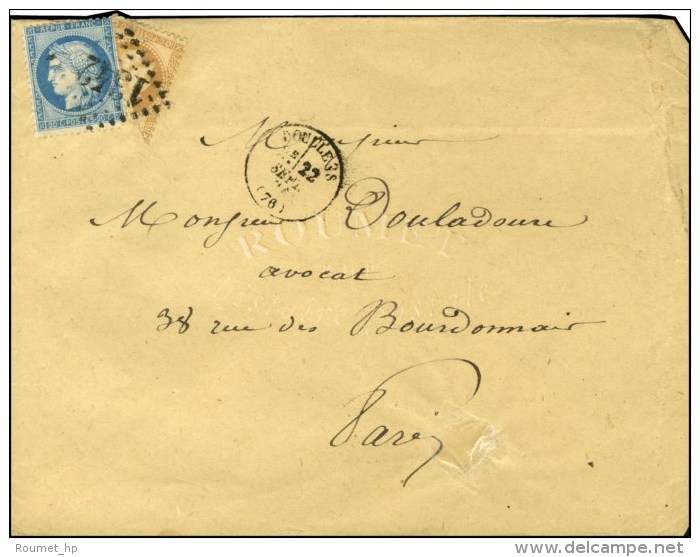 REPUB. FRANC.
1342
DOULLENS
22
SEPT.
(76)
Monsieur
Monsieur Douladoure
ROUMET
avocat
38 rue des Bourdonnais
Paris
Posté par Roumet_hp
delcampe.net